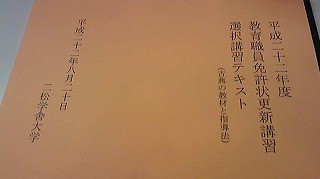 平成二十二年度
教育職員免許状更新講習
選択講習テキスト
(古典の教材と指導法)
平成二十二年八月二十日
二松学舎大学